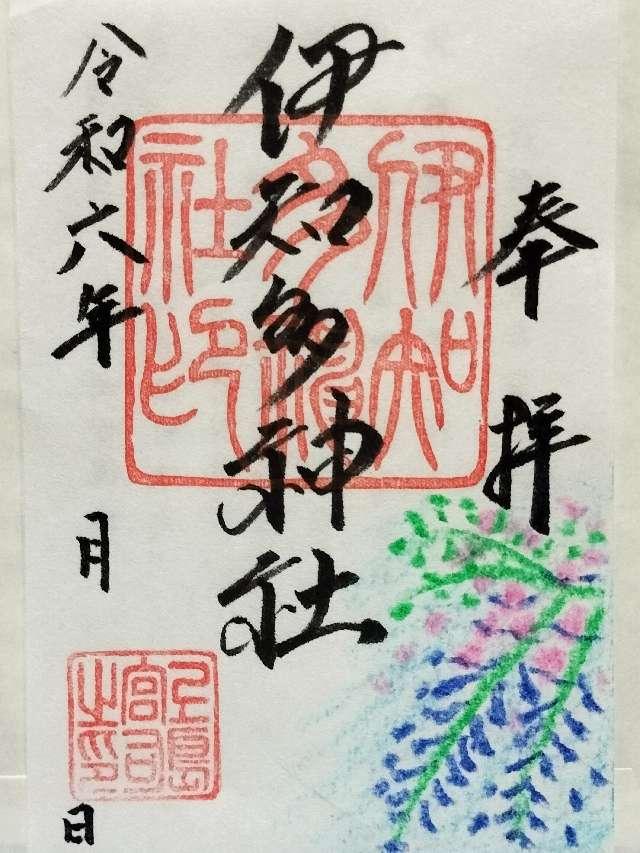 奉拝
伊知多神社
令和六年
月
日
伊知
多神
社印
宮司
之印